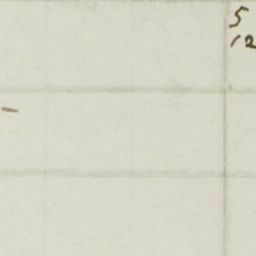 5
12
—